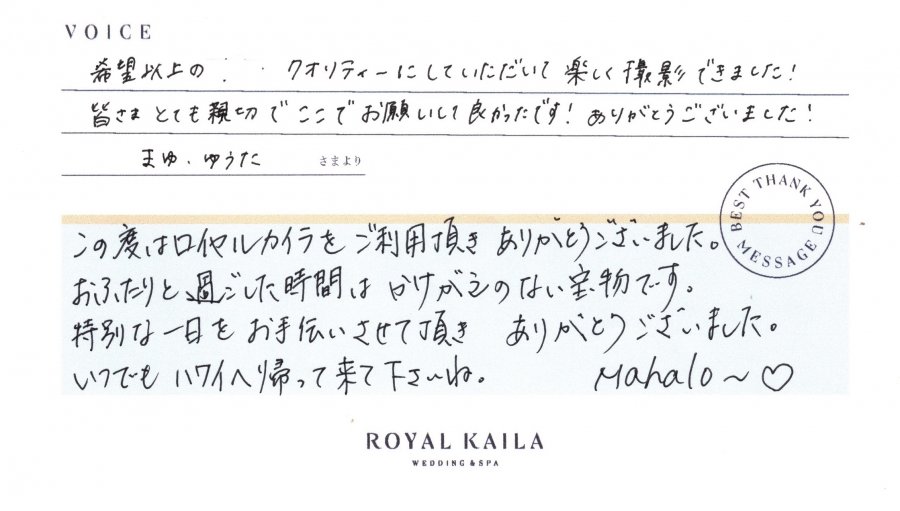 VOICE
希望以上の クオリティーにしていただいて 楽しく撮影できました!
皆さま とても親切で ここで お願いして良かったです! ありがとうございました!
まゆ・ゆうた さまより
BEST THANK YOU MESSAGE
この度はロイヤルカイラを ご利用頂き ありがとうございました。
おふたりと過ごした時間は かけがえのない宝物です。
特別な一日を お手伝いさせて頂き ありがとうございました。
いつでも ハワイへ帰って来て下さいね。 Mahalo~♡
ROYAL KAILA
WEDDING & SPA